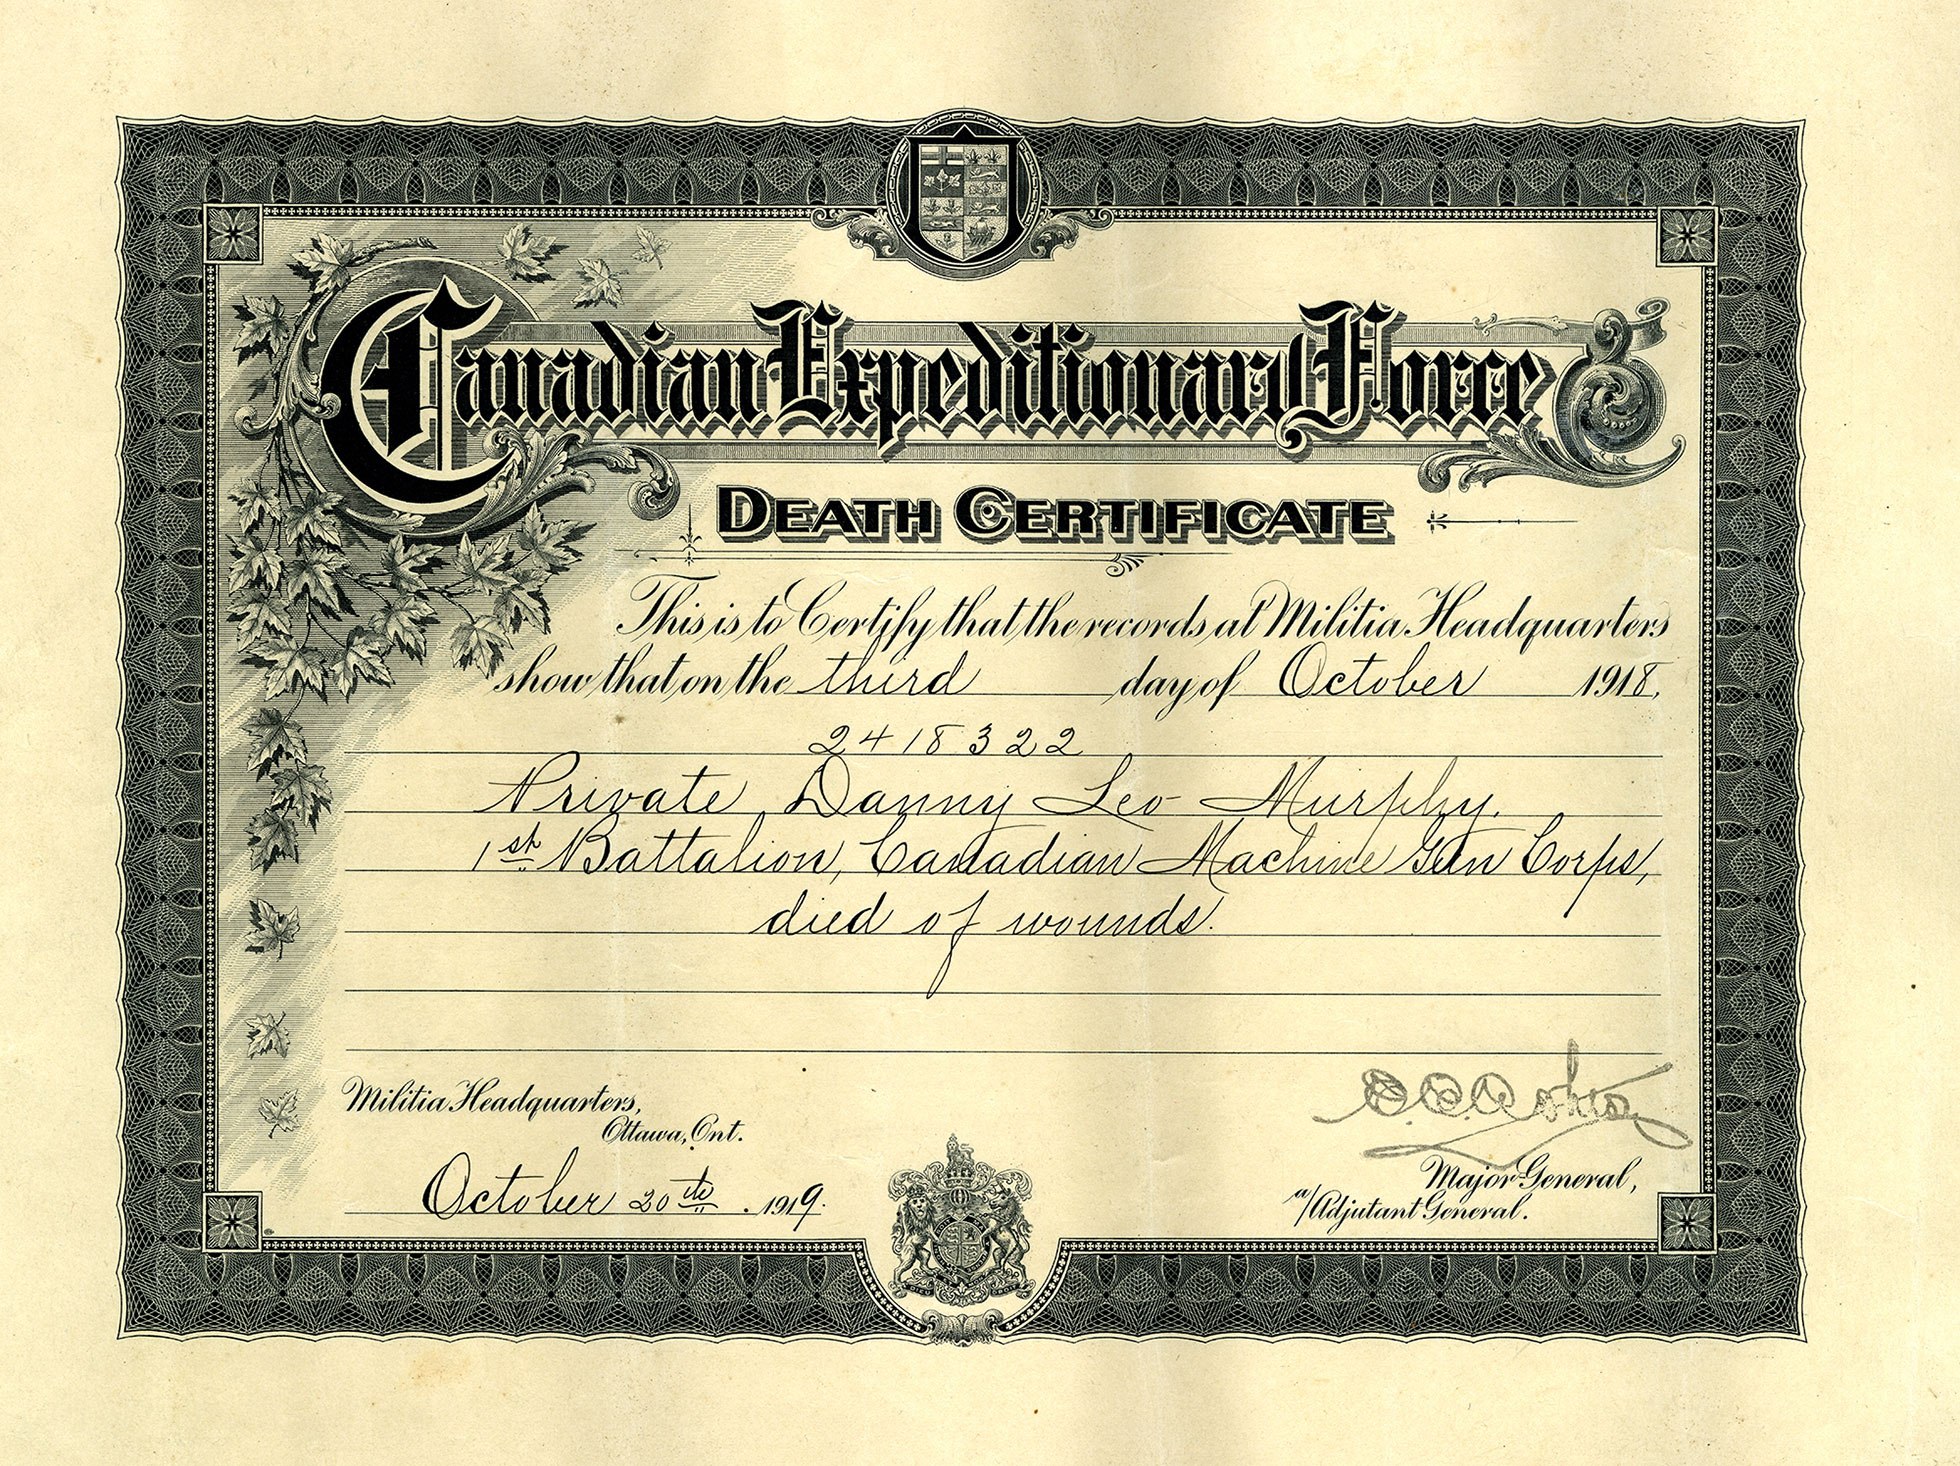 Canadian Expeditionary Force
DEATH CERTIFICATE
This is to Certify that the records at Militia Headquarters
show that on the third day of October 1918,
2418322
Private Danny Leo Murphy.
1st Battalion, Canadian Machine Gun Corps,
died of wounds.
Militia Headquarters,
Ottawa, Ont.
October 20th 1919.
Major General,
a/Adjutant General.